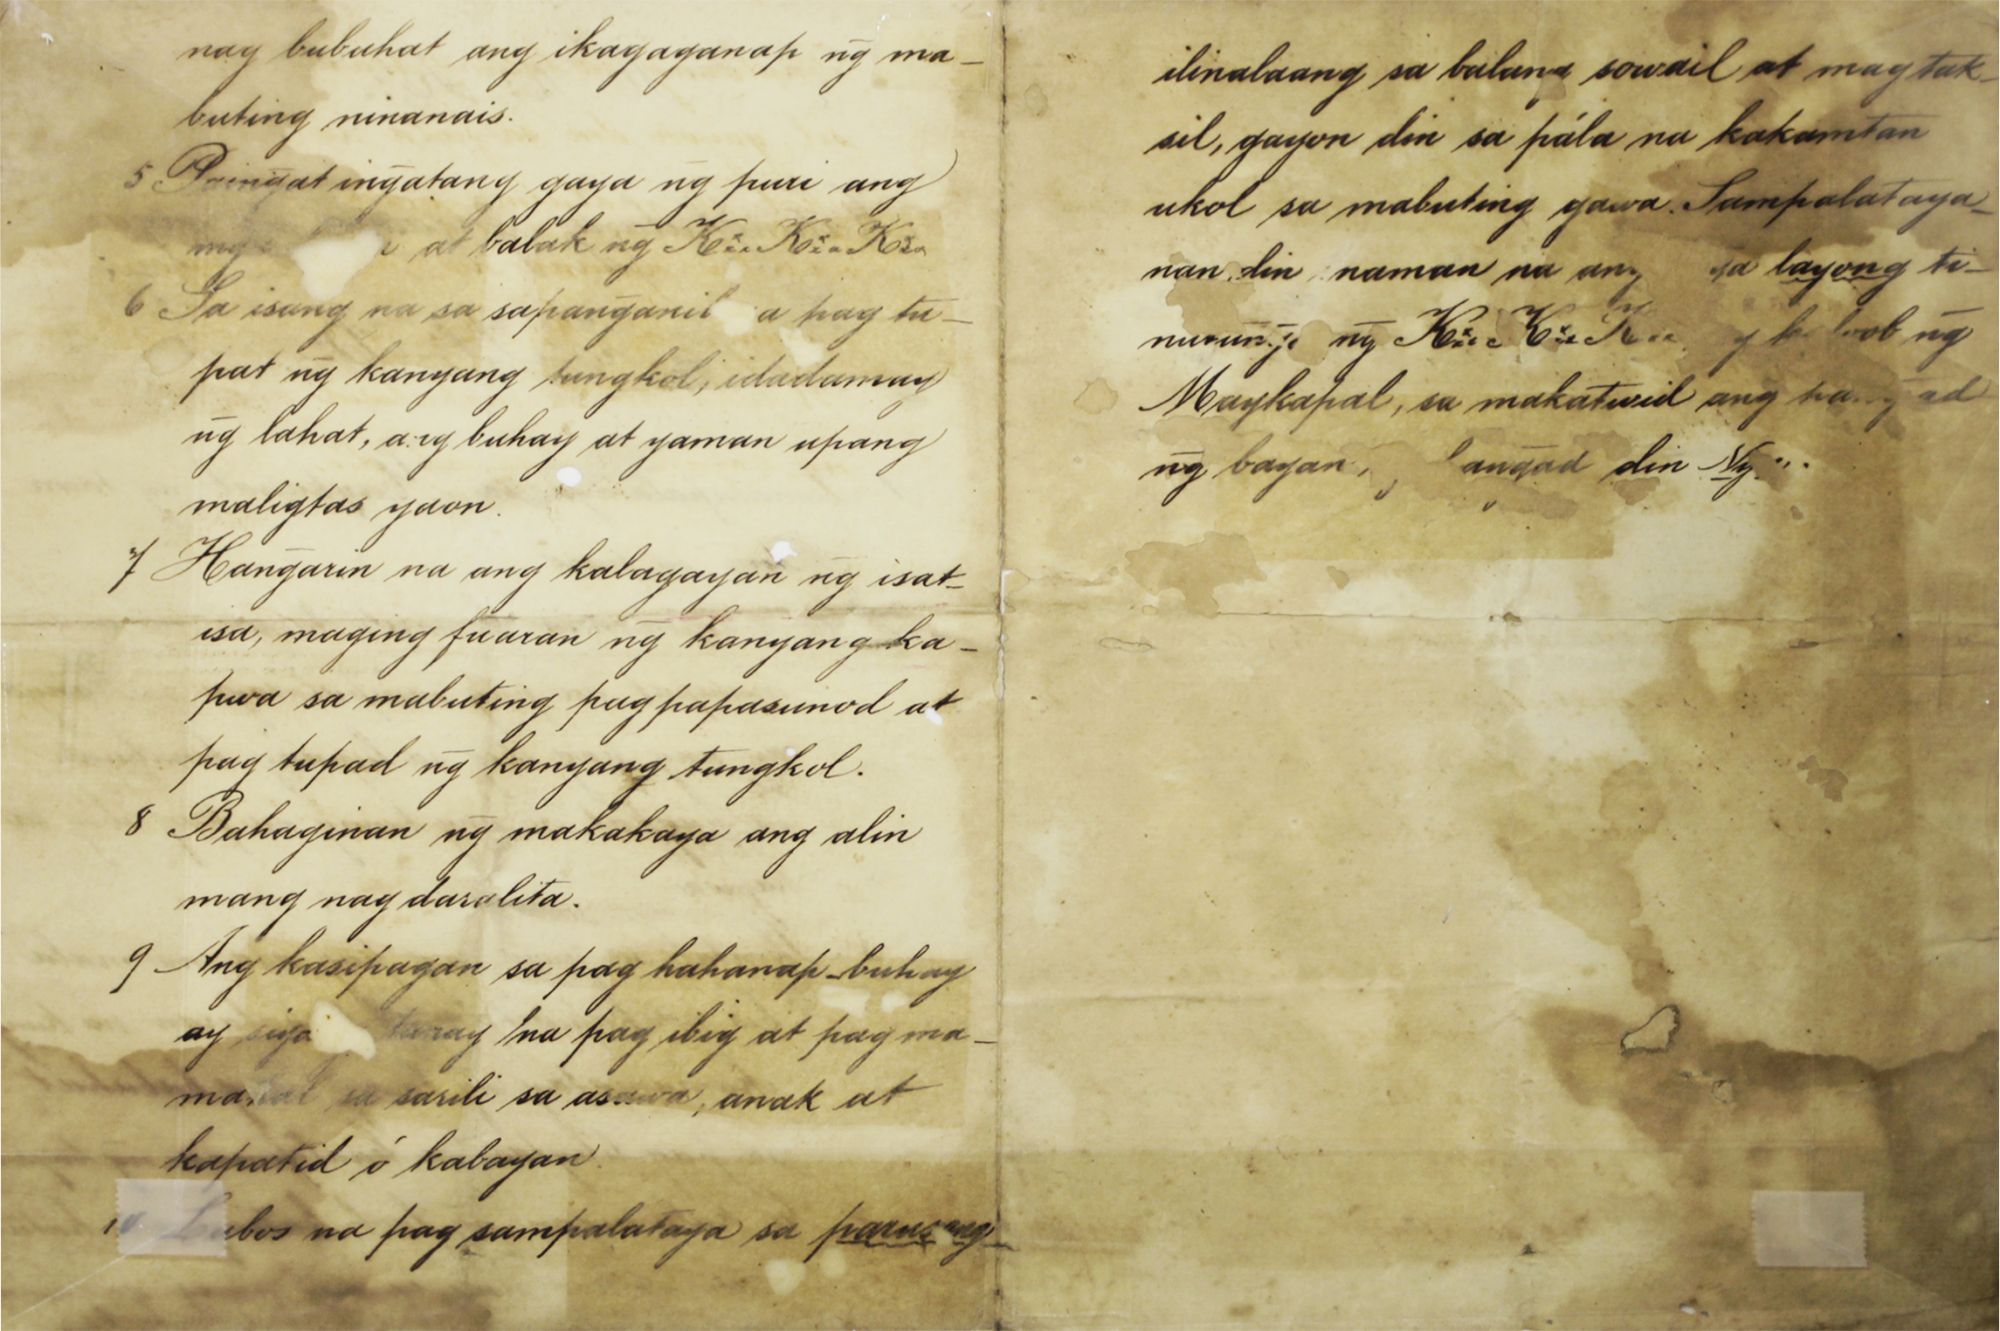 nag bubuhat ang ikagaganap ng̃ ma-
buting ninanais.
5 Paingat ing̃atang gaya ng̃ puri ang
mg at balak ng̃ K∴ K∴ K∴
6 Sa isang na sa sapang̃anib a pag tu-
pat ng̃ kanyang tungkol, idadamay
ng̃ lahat, ang buhay at yaman upang
maligtas yaon.
7 Hang̃arin na ang kalagayan ng̃ isat-
isa, maging fuaran ng̃ kanyang ka-
pwa sa mabuting pag papasunod at
pag tupad ng̃ kanyang tungkol.
8 Bahaginan ng̃ makakaya ang alin
mang nag daralita.
9 Ang kasipagan sa pag hahanap-buhay
ay siya tunay na pag ibig at pag ma-
mahal sa sarili sa asawa, anak at
kapatid ó kabayan.
10 Lubos na pag sampalataya sa parusang
ilinalaang sa balang sowail at mag tak-
sil, gayon din sa pála na kakamtan
ukol sa mabuting gawa. Sampalataya-
nan din naman na ang ga layong ti-
nutung̃o ng̃ K∴ K∴ K∴ y kaloob ng̃
Maykapal, sa makatwid ang hang̃ad
ng̃ bayan, ang̃ad din Ny